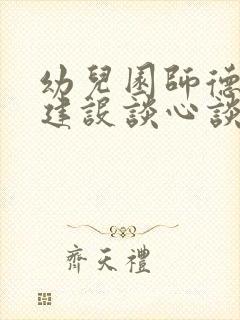 幼兒園師德
建設談心談
齊天禮